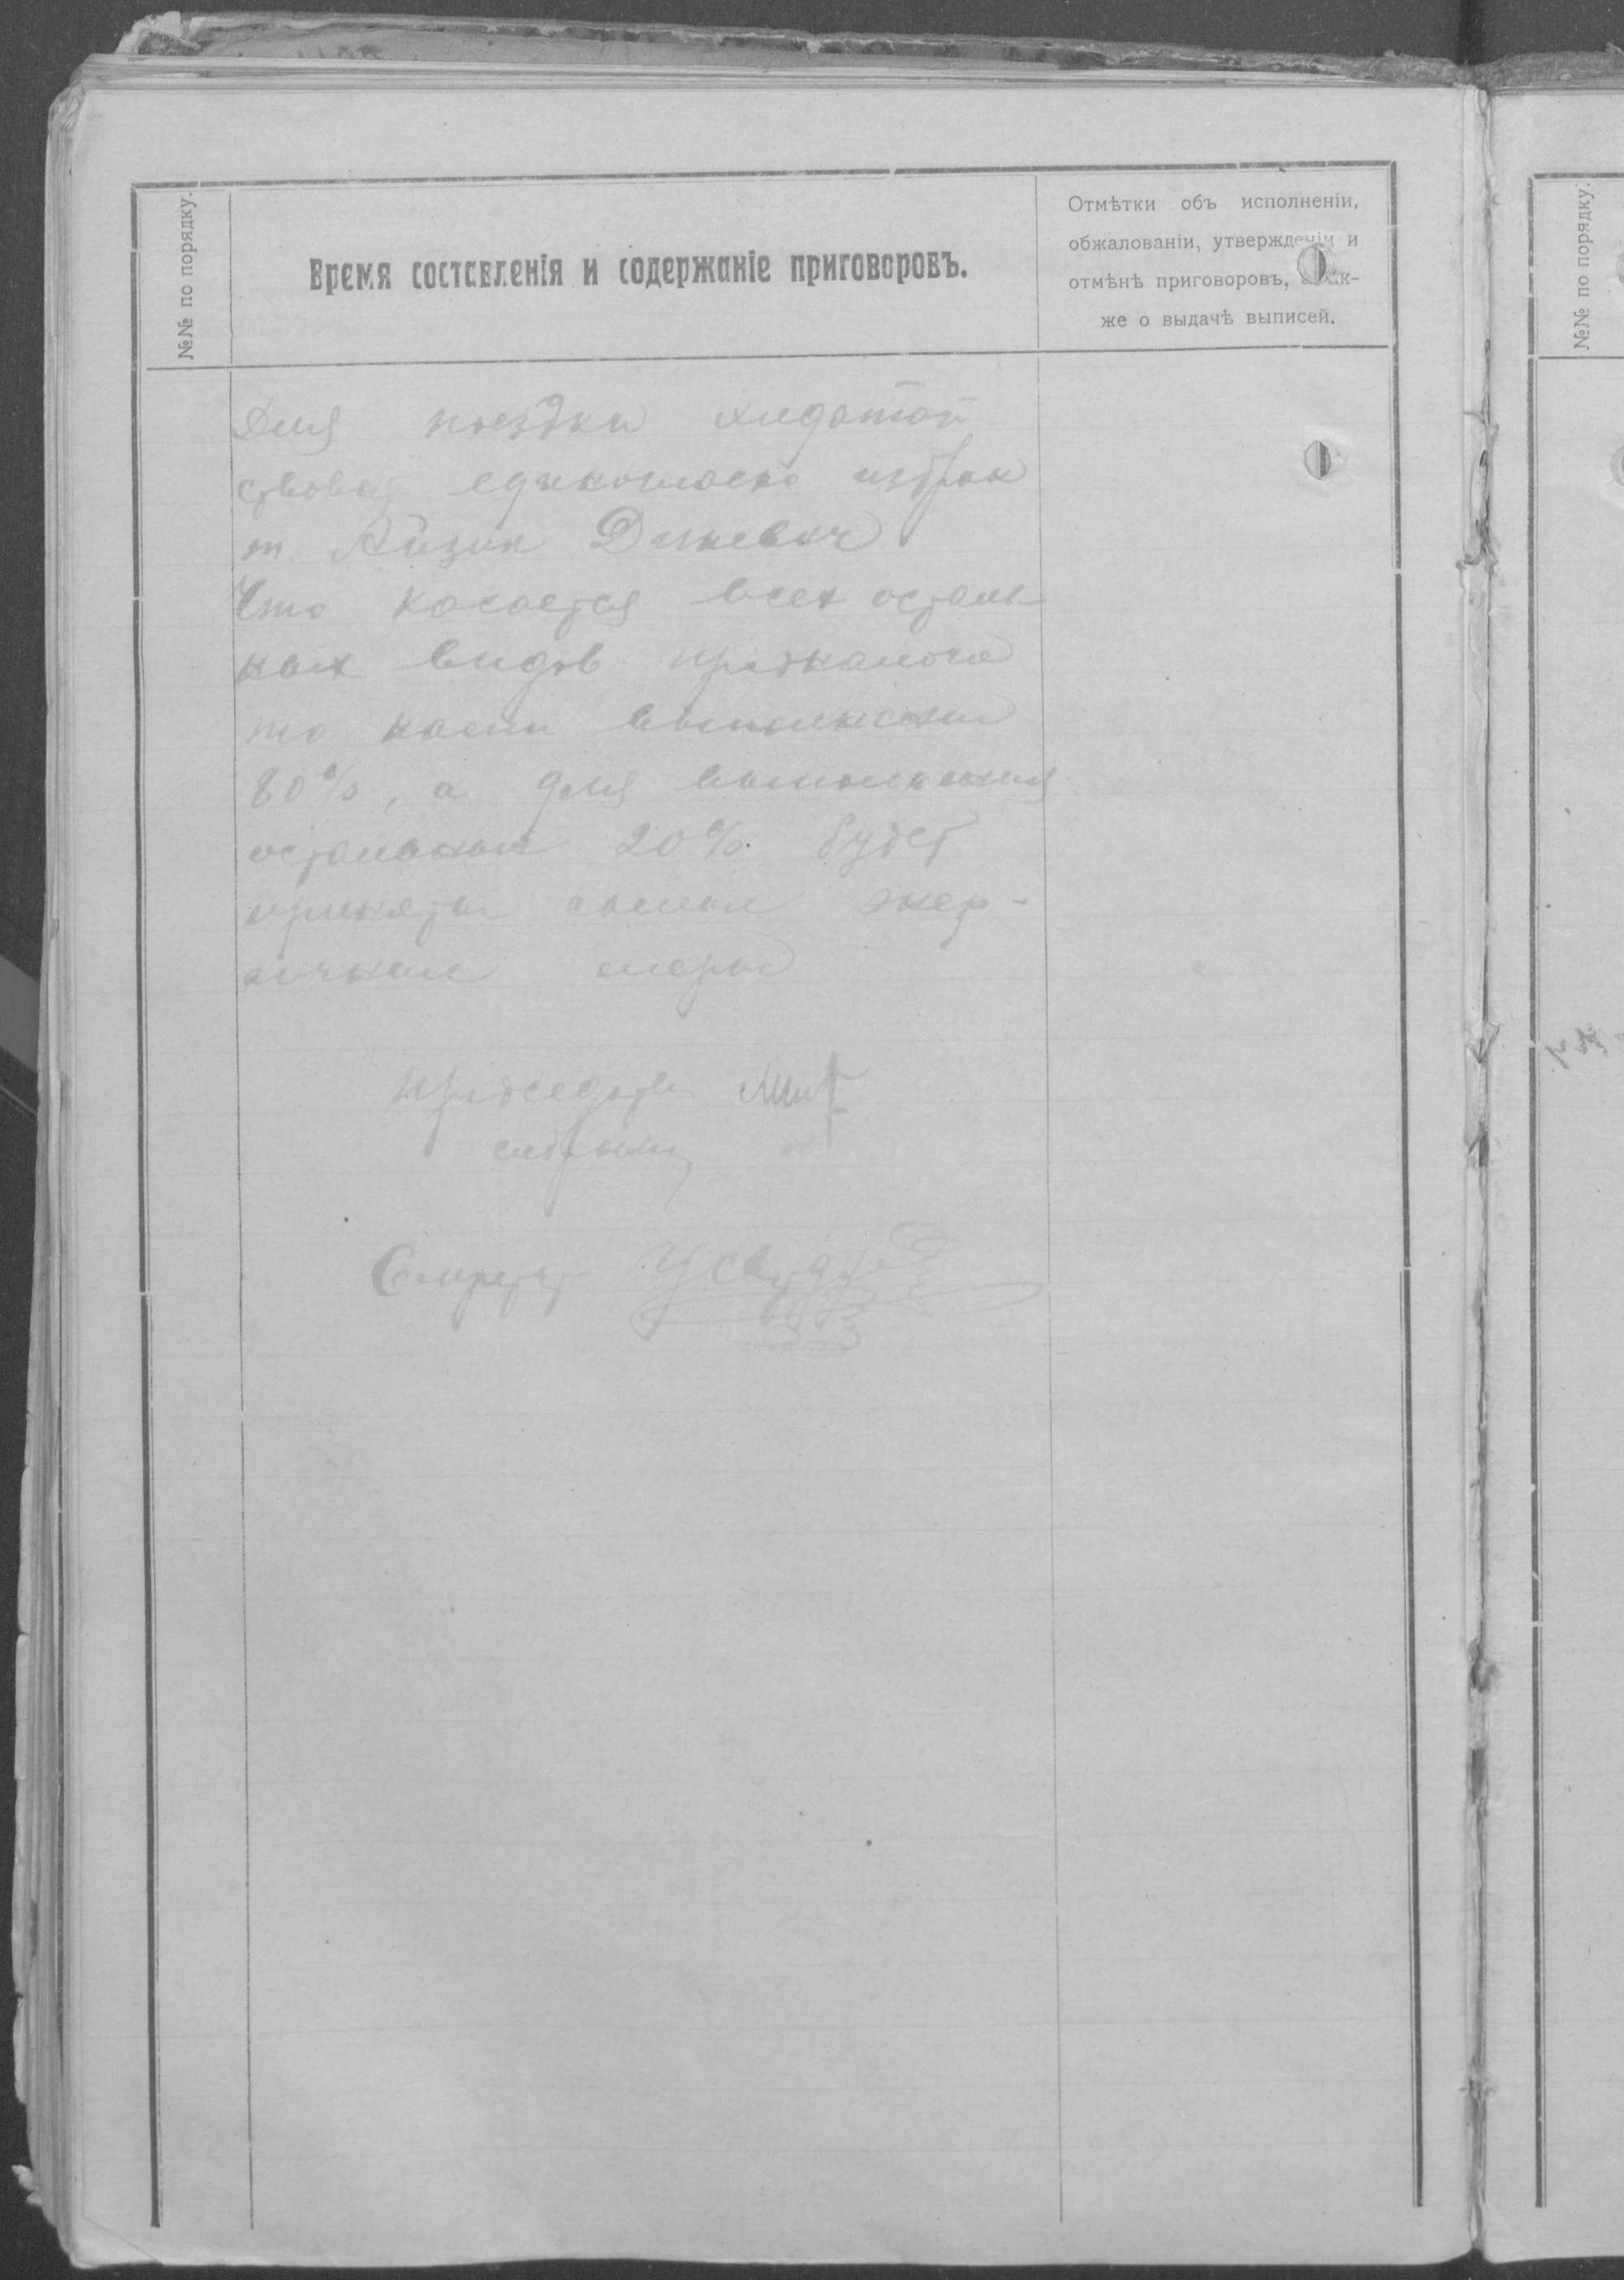 №№ по порядку.
Время составленія и содержаніе приговоровъ.
Отмѣтки объ исполненіи,
обжалованіи, утвержденіи и
отмѣнѣ приговоровъ, а так-
же о выдачѣ выписей.
Для поездки ходатай
ствоват единогласно избран
т. Айзик Диневич
Что касается всех осталь
ных видов продналога
то нами выполнены
80%, а для выполнения
остальных 20% будет
приняты самые энер-
гичные меры
Председатель
собрания
Секретарь
№№ по порядку.